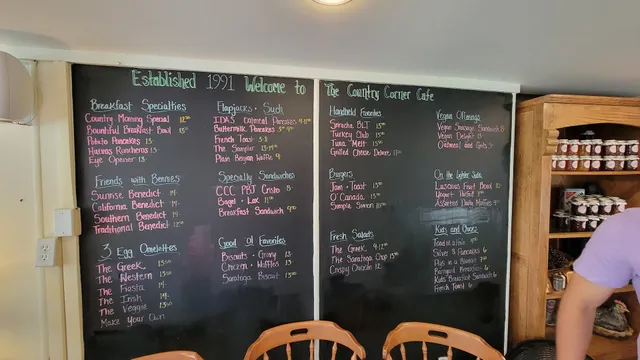 Established 1991 Welcome to The Country Corner Cafe
Breakfast Specialties
Country Morning Special
Bountiful Breakfast Bowl
Potato Pancakes 13
Huevos Rancheros 13
Eye Opener 13
Friends with Bennies
Sunrise Benedict 14
California Benedict 14
Southern Benedict 14
Traditional Benedict
3 Egg Omelettes
The Greek 13.50
The Western 13.50
The Fiesta 14
The Irish 14
The Veggie 13.50
Make Your Own
Flapjacks & Such
IDA'S Oatmeal Pancakes
Buttermilk Pancakes
French Toast
The Sampler
Plain Belgian Waffle 9
Specialty Sandwiches
CCC PBJ Cristo
Bagel & Lox
Breakfast Sandwich
Good Ol Favorites
Biscuits & Gravy 13
Chicken & Waffles 13
Saratoga Biscuit
Handheld Favorites
Sriracha BLT
Turkey Club
Tuna Melt
Grilled Cheese Deluxe
Burgers
Jam & Toast
O' Canada
Simple Simon
Fresh Salads
The Greek
The Saratoga Chop
Crispy Chicken 12
Vegan Offerings
Vegan Sausage Sandwich
Vegan Delight
Oatmeal and Grits
On the Lighter Side
Luscious Fruit Bowl
Yogurt Parfait
Assorted Daily Muffins
Kids and Shoes
Toad in a Hole
Silver $ Pancakes 6
Pigs in a Blanket
Barnyard Breakfast
Kids' Breakfast Sandwich
French Toast 6